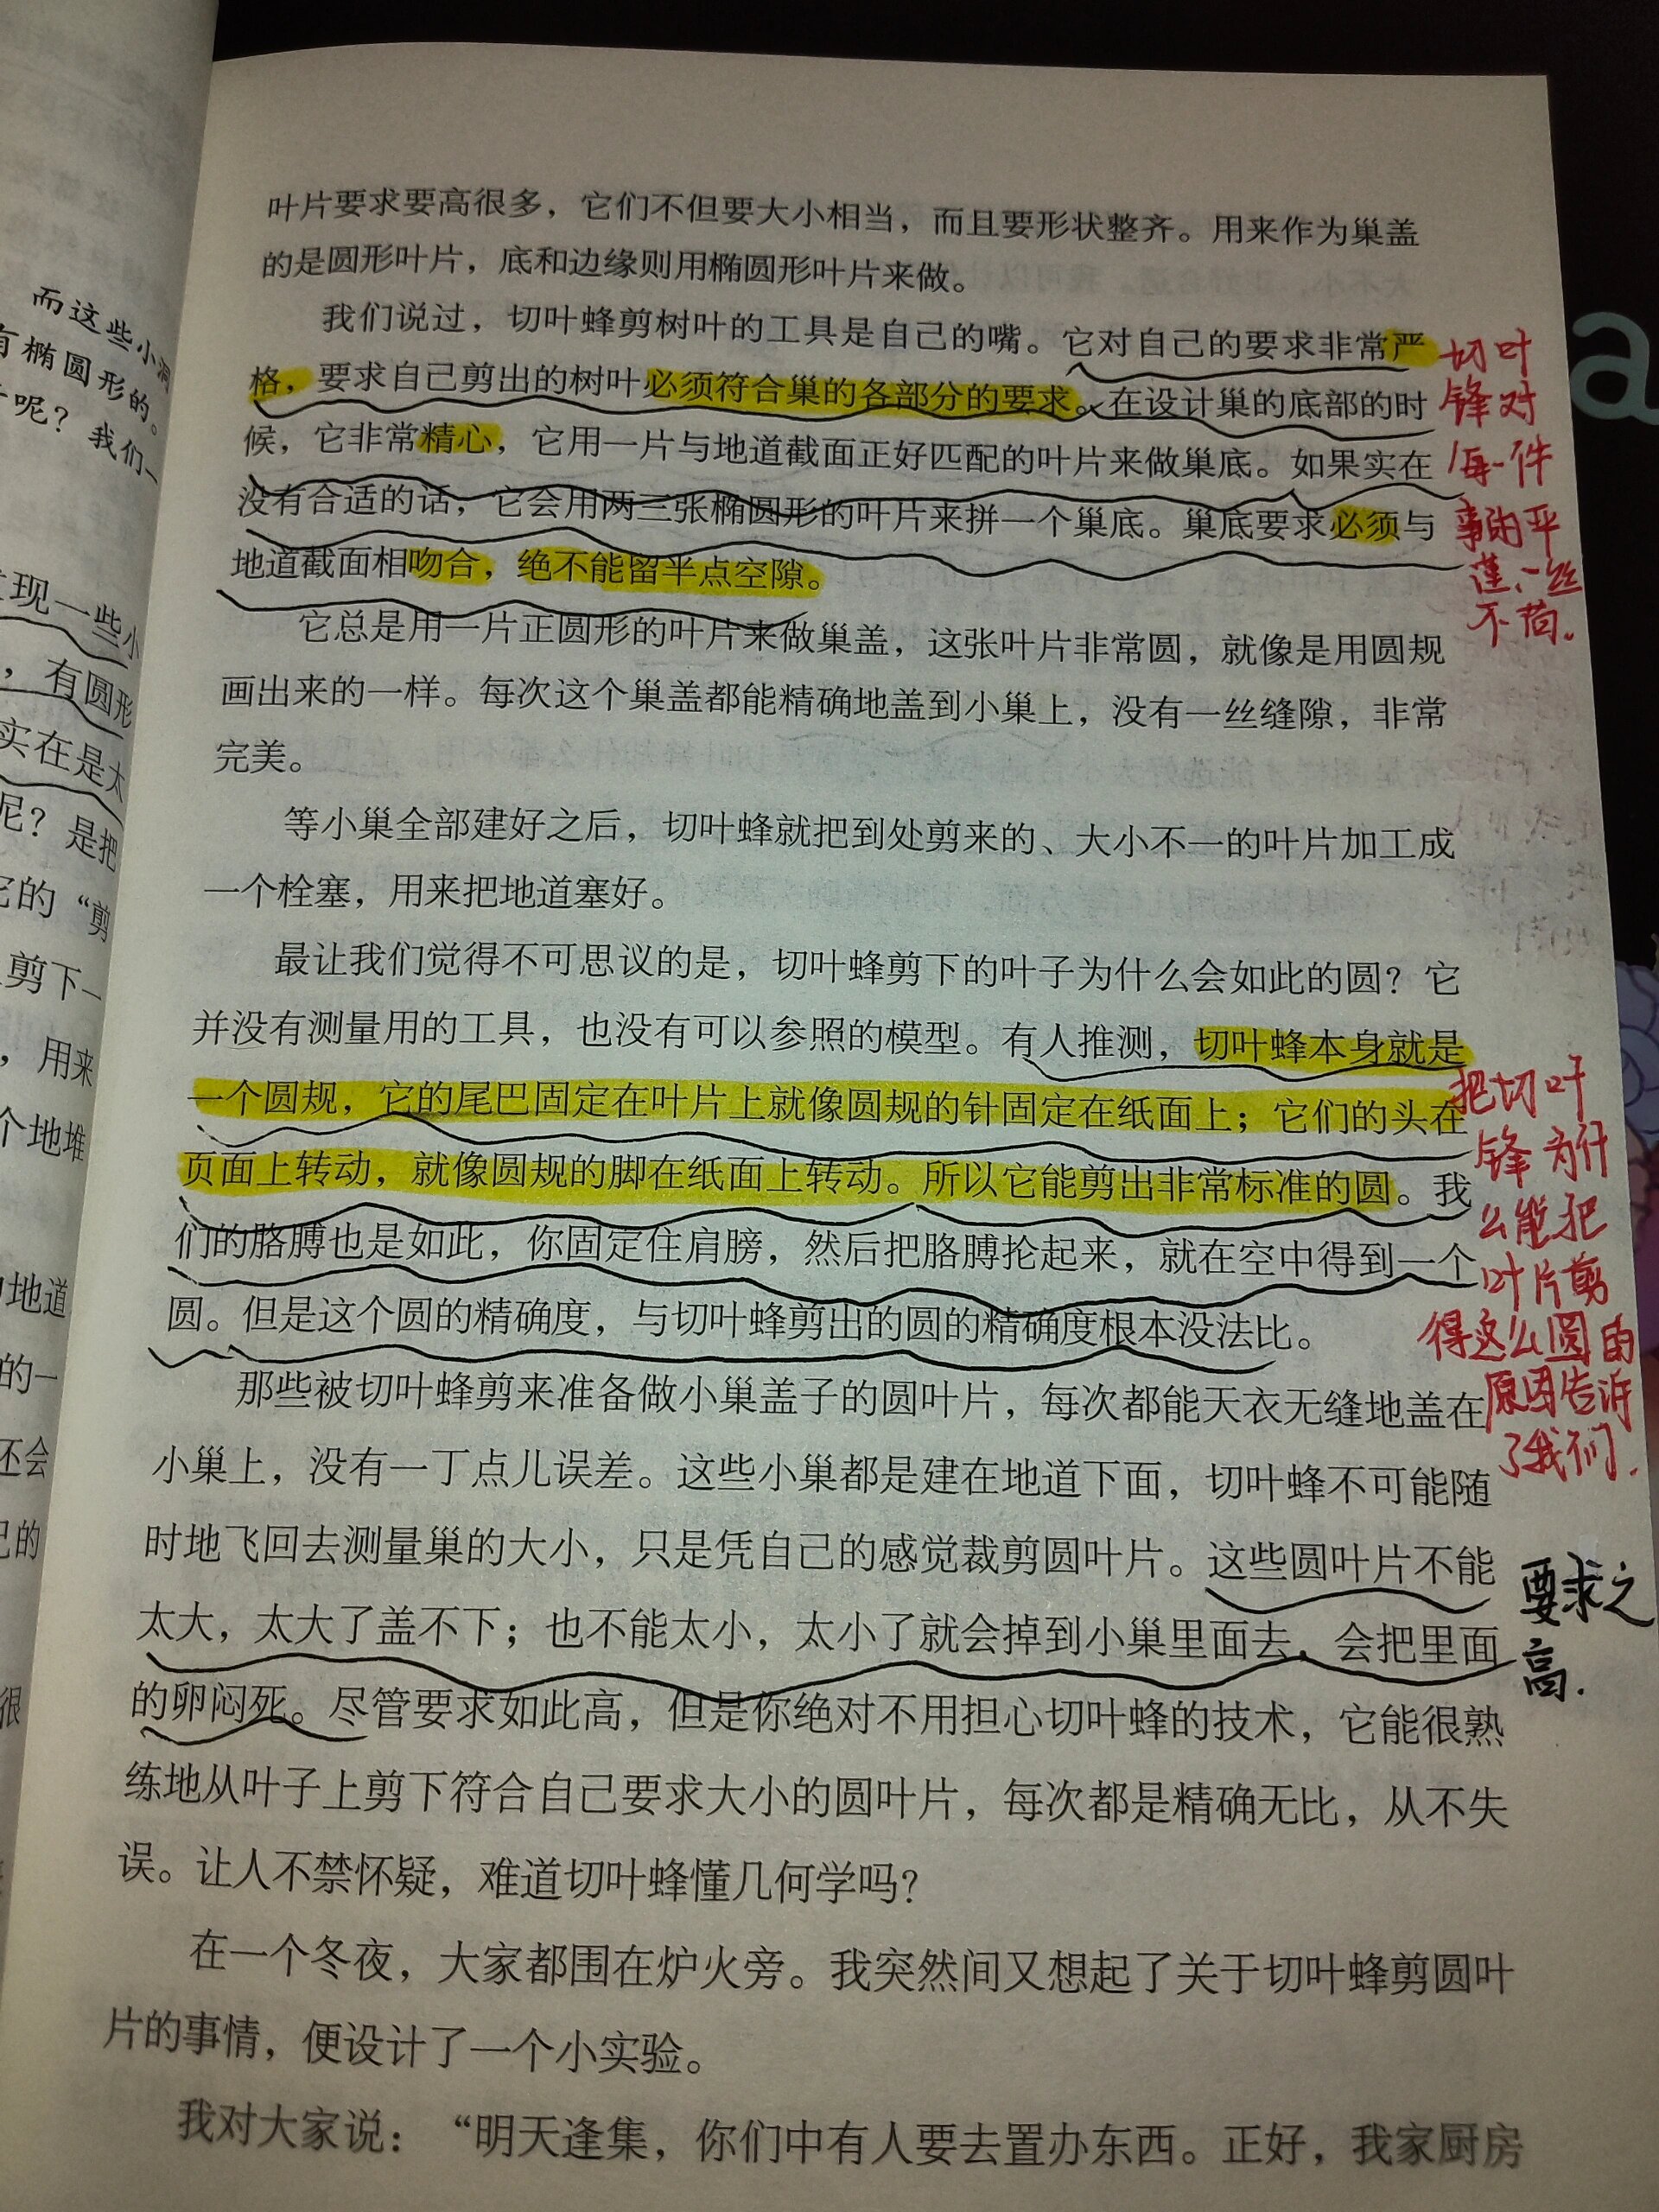 叶片要求要高很多，它们不但要大小相当，而且要形状整齐。用来作为巢盖
的是圆形叶片，底和边缘则用椭圆形叶片来做。
我们说过，切叶蜂剪树叶的工具是自己的嘴。它对自己的要求非常严
格，要求自己剪出的树叶必须符合巢的各部分的要求。在设计巢的底部的时
候，它非常精心，它用一片与地道截面正好匹配的叶片来做巢底。如果实在
没有合适的话，它会用两三张椭圆形的叶片来拼一个巢底。巢底要求必须与
地道截面相吻合，绝不能留半点空隙。
它总是用一片正圆形的叶片来做巢盖，这张叶片非常圆，就像是用圆规
画出来的一样。每次这个巢盖都能精确地盖到小巢上，没有一丝缝隙，非常
完美。
等小巢全部建好之后，切叶蜂就把到处剪来的、大小不一的叶片加工成
一个栓塞，用来把地道塞好。
最让我们觉得不可思议的是，切叶蜂剪下的叶子为什么会如此的圆？它
并没有测量用的工具，也没有可以参照的模型。有人推测，切叶蜂本身就是
一个圆规，它的尾巴固定在叶片上就像圆规的针固定在纸面上；它们的头在
页面上转动，就像圆规的脚在纸面上转动。所以它能剪出非常标准的圆。我
们的胳膊也是如此，你固定住肩膀，然后把胳膊抡起来，就在空中得到一个
圆。但是这个圆的精确度，与切叶蜂剪出的圆的精确度根本没法比。
那些被切叶蜂剪来准备做小巢盖子的圆叶片，每次都能天衣无缝地盖在
小巢上，没有一丁点儿误差。这些小巢都是建在地道下面，切叶蜂不可能随
时地飞回去测量巢的大小，只是凭自己的感觉裁剪圆叶片。这些圆叶片不能
太大，太大了盖不下；也不能太小，太小了就会掉到小巢里面去，会把里面
的卵闷死。尽管要求如此高，但是你绝对不用担心切叶蜂的技术，它能很熟
练地从叶子上剪下符合自己要求大小的圆叶片，每次都是精确无比，从不失
误。让人不禁怀疑，难道切叶蜂懂几何学吗？
在一个冬夜，大家都围在炉火旁。我突然间又想起了关于切叶蜂剪圆叶
片的事情，便设计了一个小实验。
我对大家说：“明天逢集，你们中有人要去置办东西。正好，我家厨房
切叶
锋对
每一件
事的严
谨、一丝
不苟.
把切叶
锋为什
么能把
叶片剪
得这么圆的
原因告诉
了我们.
要求之
高.
而这些小洞
有椭圆形的。
呢？我们一
现一些小
，有圆形
实在是太
呢？是把
它的“剪
剪下一
，用来
个地堆
地道
的一
还会
己的
很
a